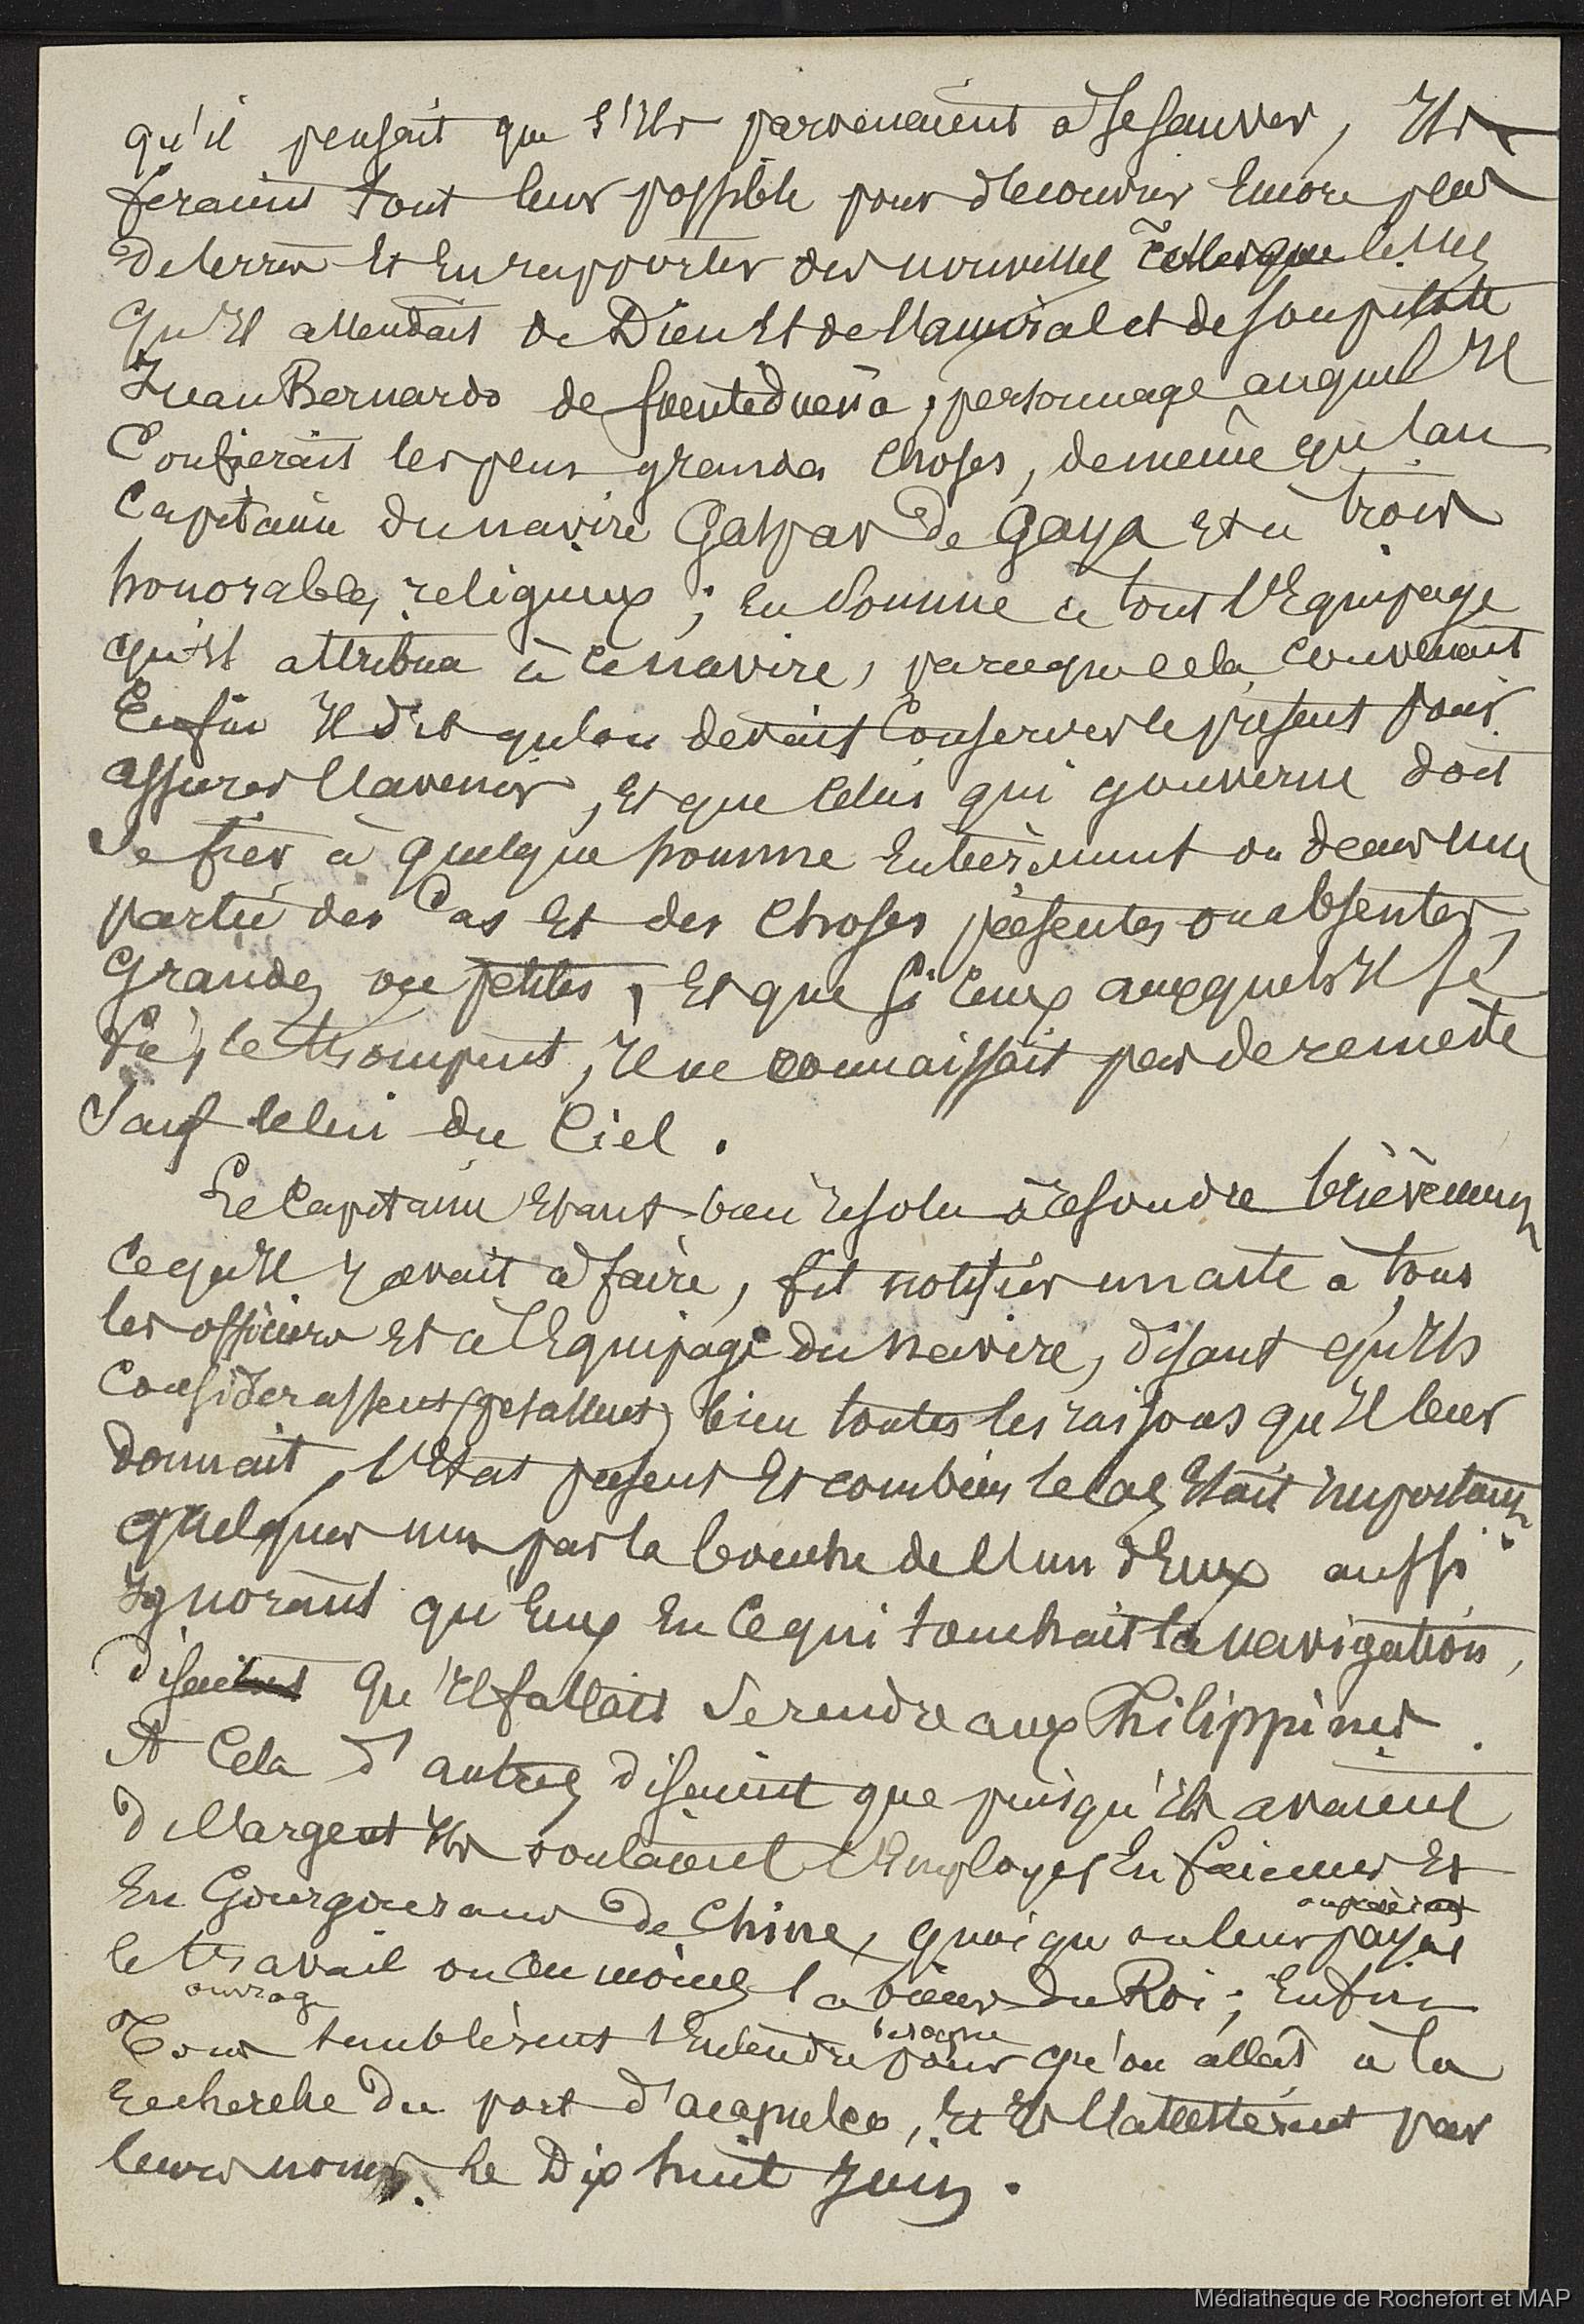 qu'il pensait que s'Ils parvenaient à se sauver, Ils
feraient tout leur possible pour découvrir Encore plus
de terres Et En rapporter des nouvelles telles que celles
qu'Il attendait de Dieu Et de l'amiral et de son pilote
Juan Bernardo de fuentedueña, personnage auquel Il
Confierait les plus grandes Choses, de même qu'au
Capitaine du navire Gaspar de Gaya Et à trois
honorables religieux; En Somme à tout l'Equipage
qu'Il attribua à ce navire, parceque cela Convenait
Enfin Il dit qu'on devait Conserver le présent pour
assurer l'avenir, Et que Celui qui gouverne doit
se fier à quelque homme Entièrement ou dans une
partie des Cas Et des Choses présentes ou absentes,
Grandes ou petites, Et que si Ceux auxquels Il se
fie, le trompent, Il ne connaissait pas de remède
Sauf Celui du Ciel.
Le Capitaine Etant bien résolu à résoudre brièvement
Ce qu'Il y avait à faire, fit notifier un acte à tous
les officiers Et à l'Equipage du navire, disant qu'Ils
Considerassent (pesassent) bien toutes les raisons qu'Il leur
donnait, l'Etat présent Et combien le cas Etait Important.
Quelques uns par la bouche de l'un d'Eux aussi
Ignorant qu'Eux En Ce qui touchait la navigation,
disaient qu'Il fallait Se rendre aux Philippines.
A Cela d'autres disaient que puisqu'Ils avaient
de l'argent Ils voulaient l'Employer En faiences Et
En Gourgourans de Chine, quoiqu'on leur payat
le travail ou au moins la bière du Roi; Enfin
ouvrage
Tous semblèrent s'Entendre pour qu'on allât à la
besogne
recherche du port d'acapulco, Et Ils l'attestèrent par
leurs noms. le Dix huit Juin.
Médiathèque de Rochefort et MAP